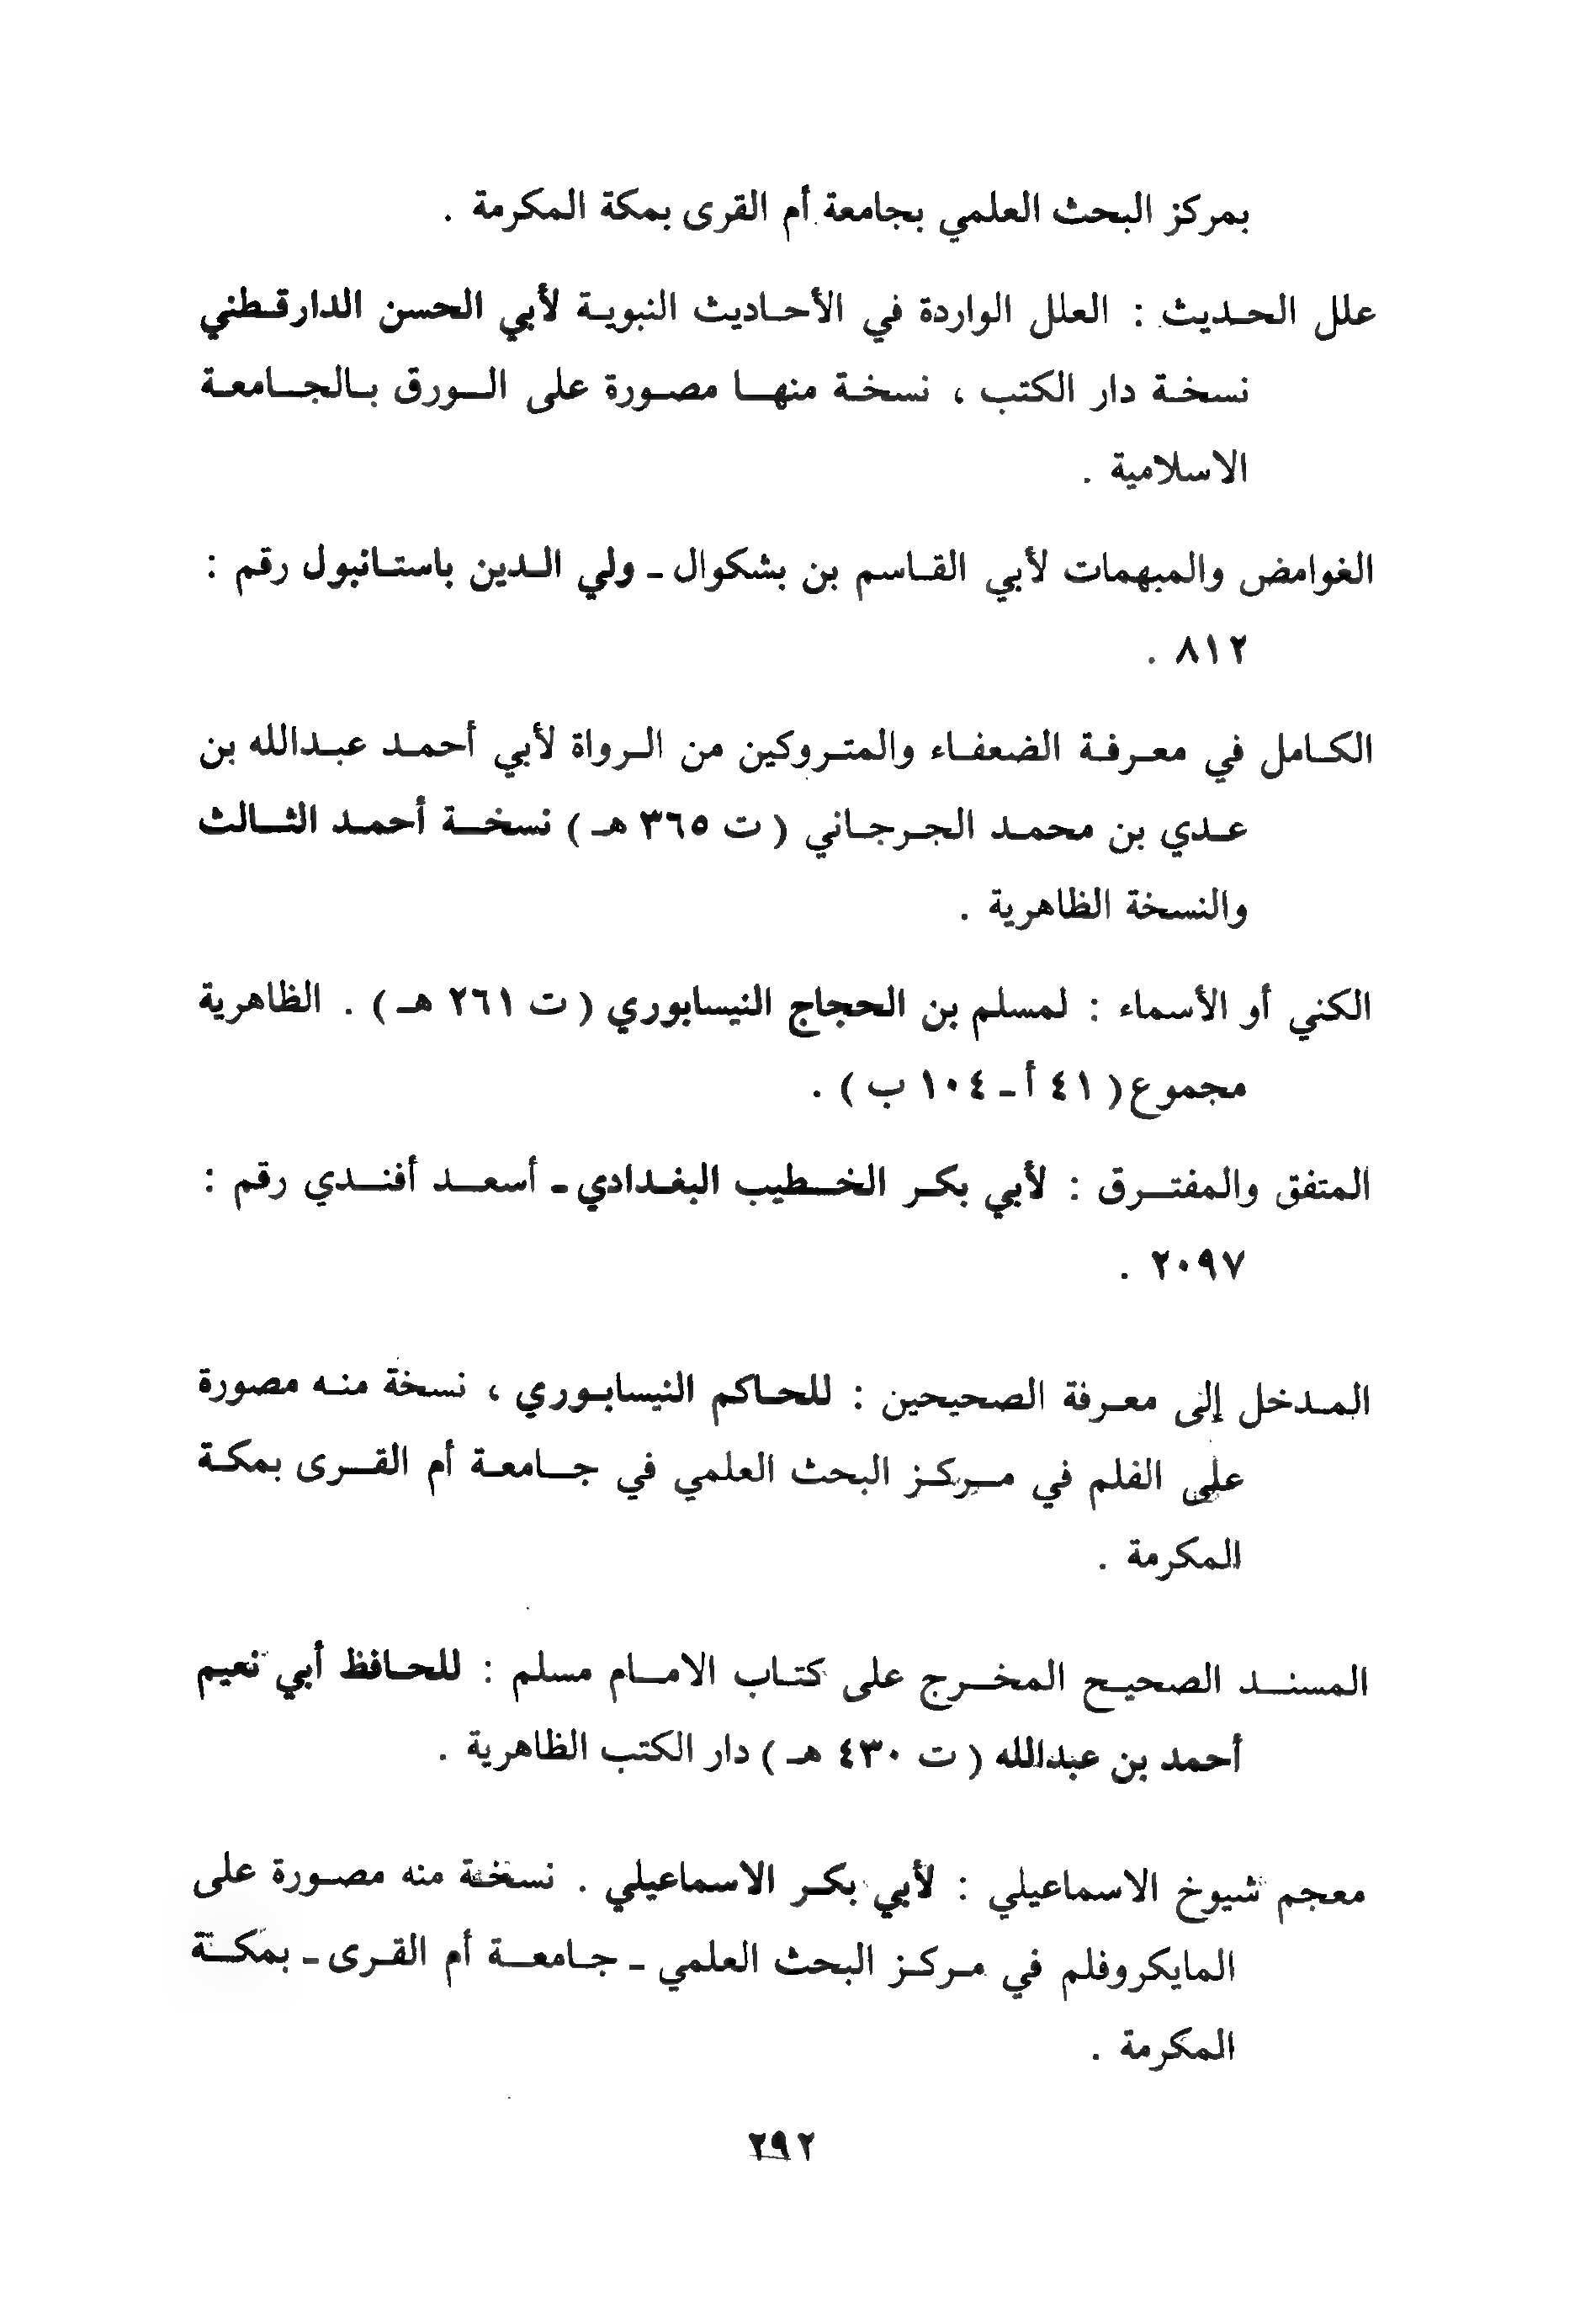 بمركز البحث العلمي بجامعة أم القرى بمكة المكرمة .
علل الحديث : العلل الواردة في الأحاديث النبوية لأبي الحسن الدارقطني
نسخة دار الكتب ، نسخة منها مصورة على الورق بالجامعة
الاسلامية .
الغوامض والمبهمات لأبي القاسم بن بشكوال ـ ولي الدين باستانبول رقم :
٨١٢ .
الكامل في معرفة الضعفاء والمتروكين من الرواة لأبي أحمد عبدالله بن
عدي بن محمد الجرجاني ( ت ٣٦٥ هـ ) نسخة أحمد الثالث
والنسخة الظاهرية .
الكني أو الأسماء : لمسلم بن الحجاج النيسابوري ( ت ٢٦١ هـ ) . الظاهرية
مجموع ( ٤١ أ ـ ١٠٤ ب ) .
المتفق والمفترق : لأبي بكر الخطيب البغدادي ـ أسعد أفندي رقم :
٢٠٩٧ .
المدخل إلى معرفة الصحيحين : للحاكم النيسابوري ، نسخة منه مصورة
على الفلم في مركز البحث العلمي في جامعة أم القرى بمكة
المكرمة .
المسند الصحيح المخرج على كتاب الامام مسلم : للحافظ أبي نعيم
أحمد بن عبدالله ( ت ٤٣٠ هـ ) دار الكتب الظاهرية .
معجم شيوخ الاسماعيلي : لأبي بكر الاسماعيلي . نسخة منه مصورة على
المايكروفلم في مركز البحث العلمي ـ جامعة أم القرى ـ بمكة
المكرمة .
٢٩٢